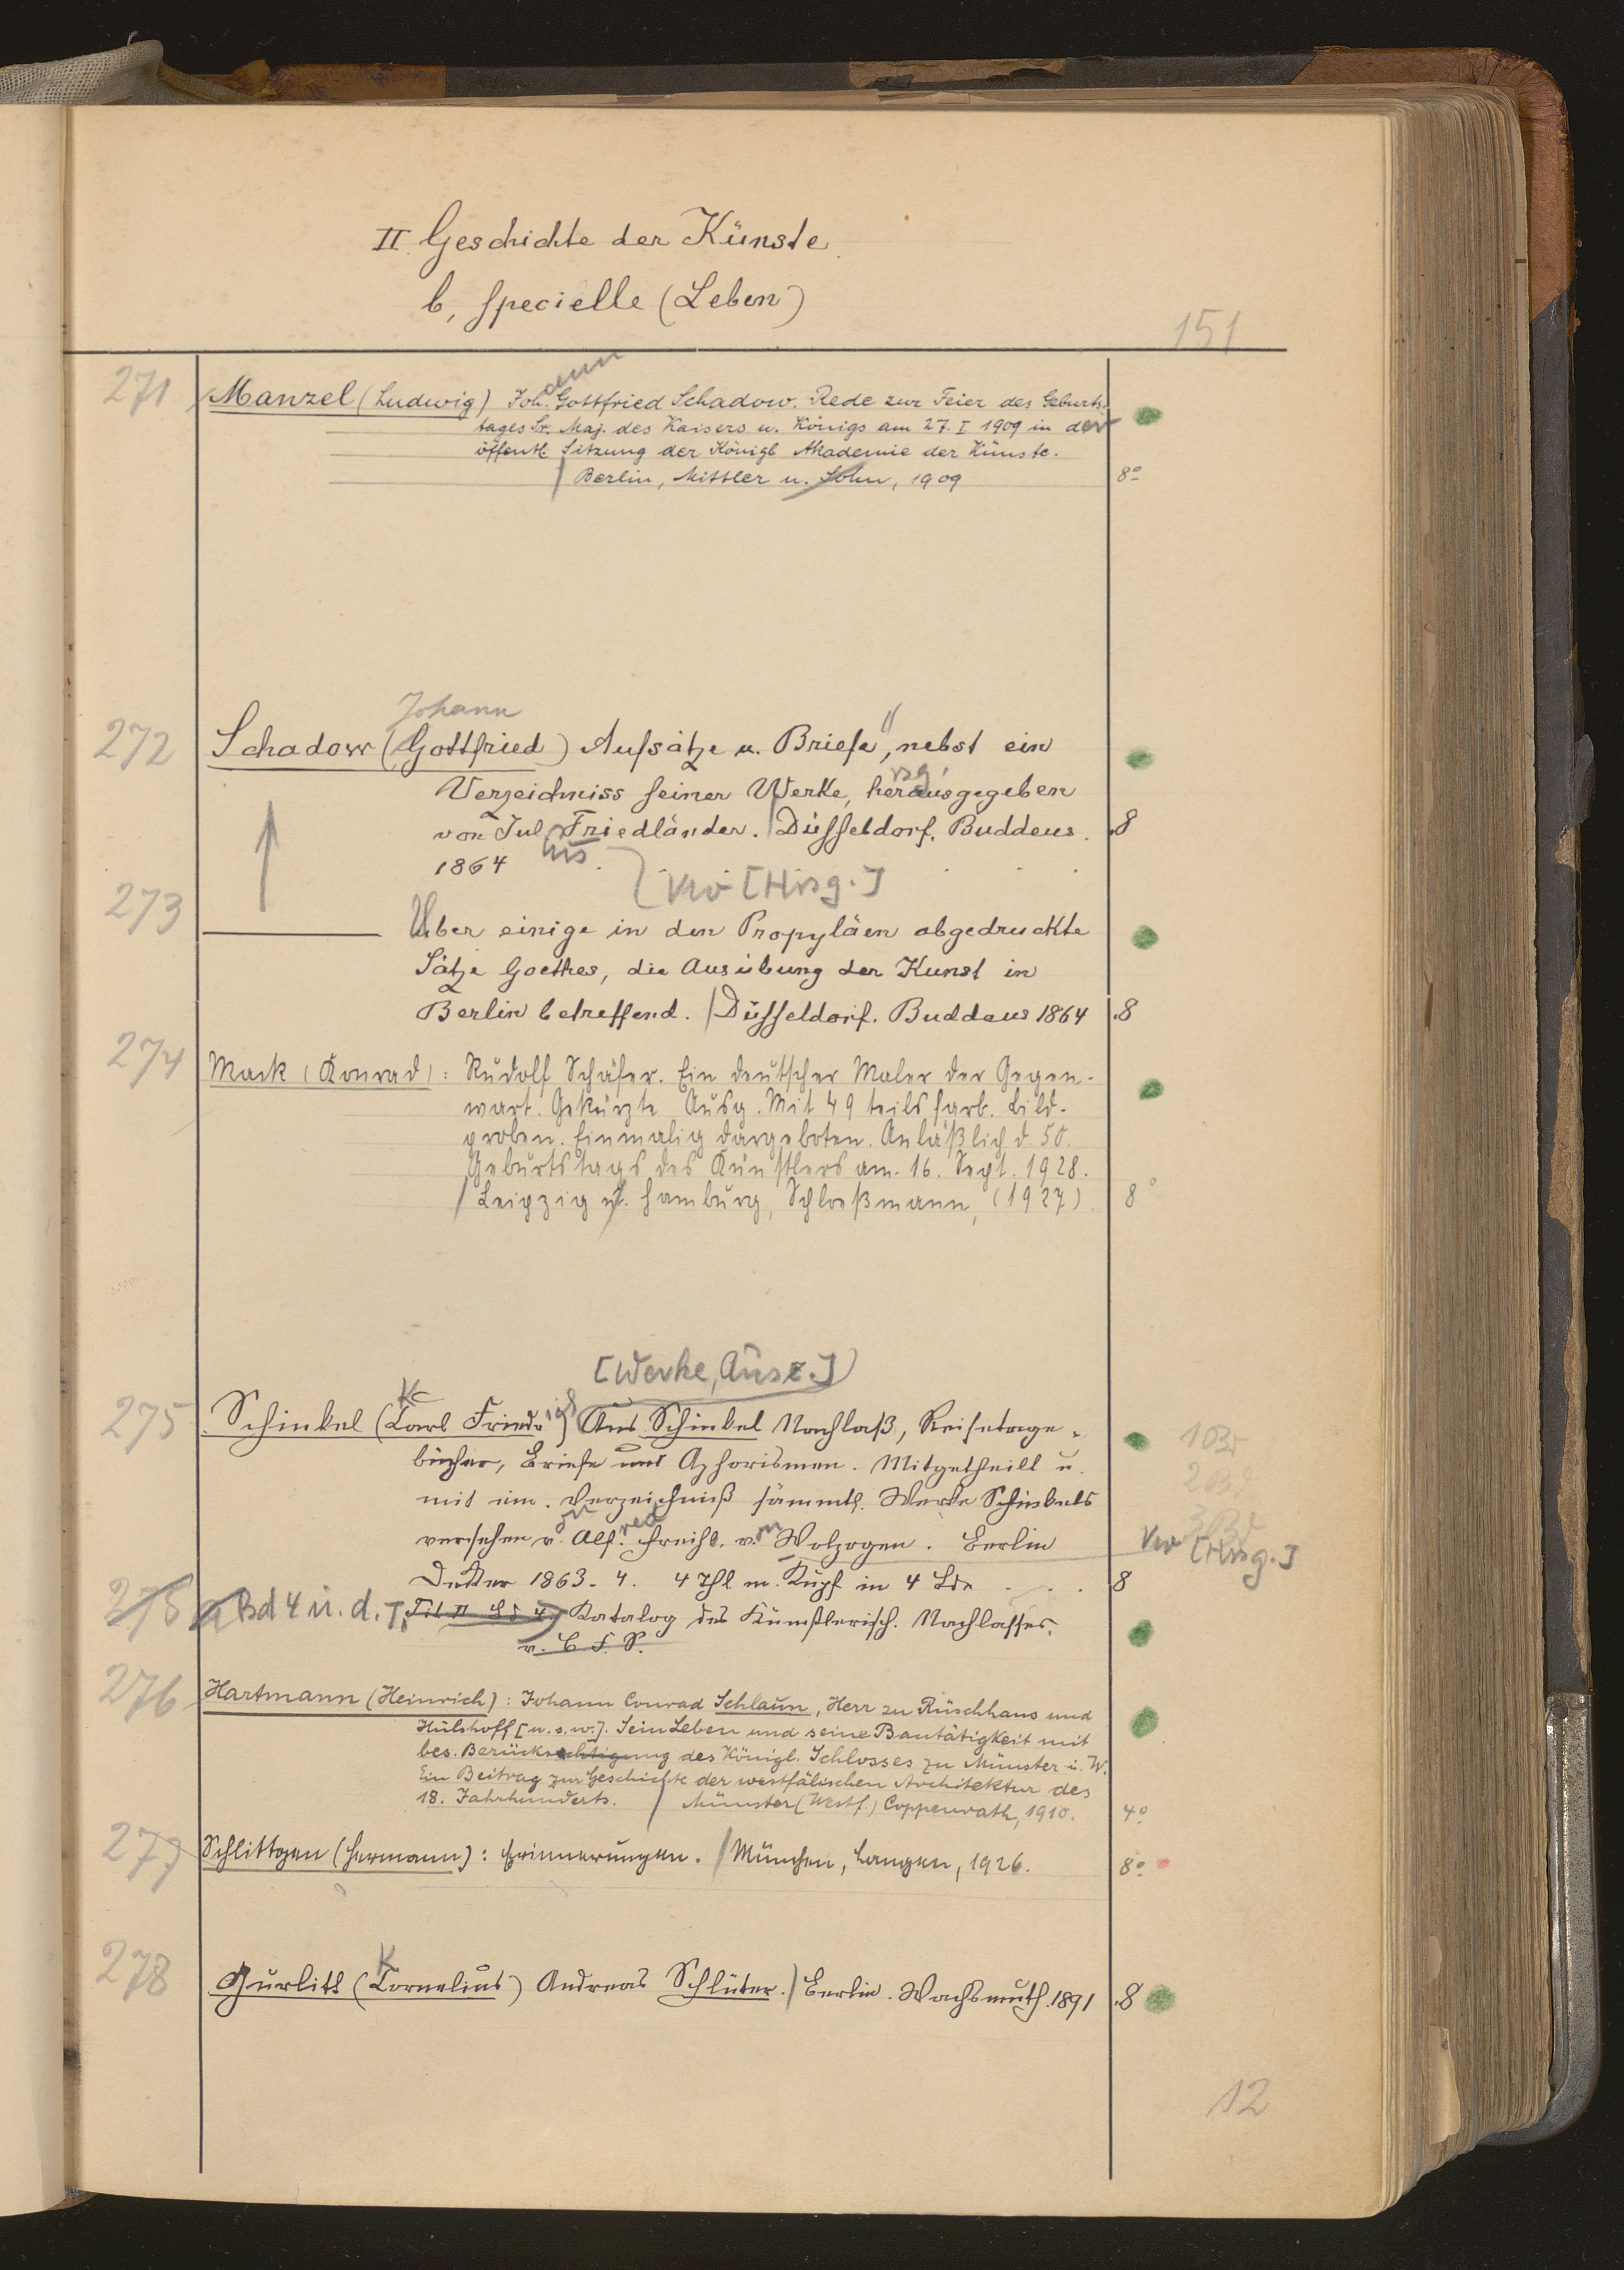 II. Geschichte der Künste.
b, specielle (Leben)
151
271 Manzel (Ludwig) Joh.ann Gottfried Schadow. Rede zur Feier des Geburts-
tages Sr. Maj. des Kaisers u. Königs am 27. I 1909 in der
öffentl Sitzung der Königl Akademie der Künste.
Berlin, Mittler u. Sohn, 1909 8º
Johann
272 Schadow (Gottfried) Aufsätze u. Briefe, nebst ein
rsg.
Verzeichniss seiner Werke, herausgegeben
von Jul. Friedländer. Düsseldorf. Buddeus. 8
ius
1864
Vw [Hrsg.]
273 ——— Über einige in den Propyläen abgedruckte
Sätze Goethes, die Ausübung der Kunst in
Berlin betreffend. Düsseldorf. Buddeus 1864 8
274 Mack (Konrad): Rudolf Schäfer. Ein deutscher Maler der Gegen-
wart. Gekürzte Ausg. Mit 49 teils farb. Bild-
proben. Einmalig dargeboten. Anläßlich d. 50.
Geburtstags des Künstlers am. 16. Sept. 1928.
Leipzig u. Hamburg, Schloeßmann, (1927). 8º
[Werke, Ausz.]
K
275 Schinkel (Carl Friedrich) Aus Schinkel Nachlaß, Reisetage-
bücher, Briefe und Aphorismen. Mitgetheilt u.
mit ein. Verzeichniß sämmtl. Werke Schinkels
versehen v. Alf.red Freih. v. Wolzogen. Berlin
1 Bd
2 Bd
3 Bd
Vw [Hrsg.]
Decker 1863-4. 4 Thl m. Kupf in 4 Bde 8
Bd 4 u. d. T. Tit II Bd 4 Katalog des Künstlerisch. Nachlasses.
v. C. F. S.
276 Hartmann (Heinrich): Johann Conrad Schlaun, Herr zu Rüschhaus und
Hülshoff [u.s.w.]. Sein Leben und seine Bautätigkeit mit
bes. Berücksichtigung des Königl. Schlosses zu Münster i. W.
Ein Beitrag zur Geschichte der westfälischen Architektur des
18. Jahrhunderts. Münster (Westf.) Coppenrath, 1910. 4º
277 Schlittgen (Hermann): Erinnerungen. München, Langen, 1926. 8º
K
278 Gurlitt (Cornelius) Andreas Schlüter. Berlin. Wachsmuth. 1891 8
12